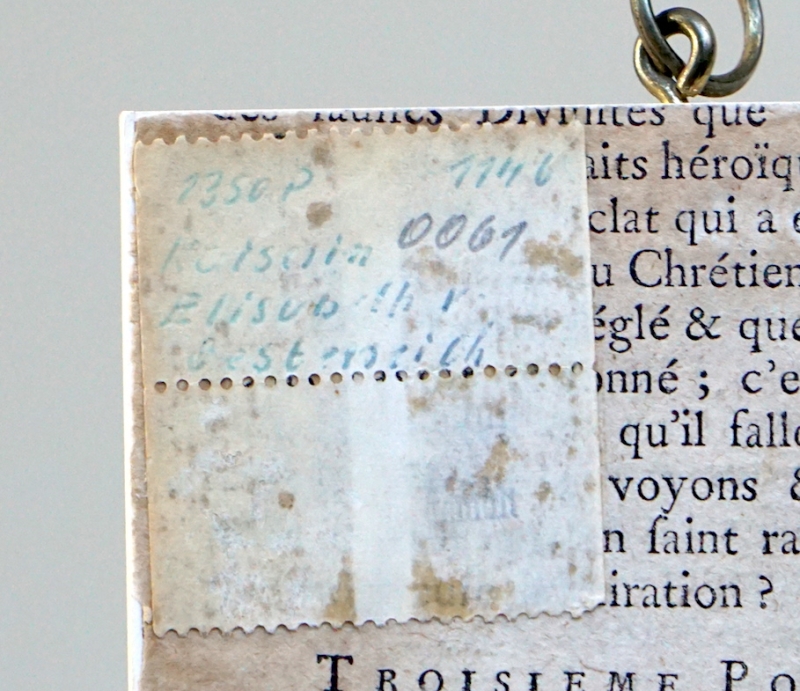 des fauſſes Divinités que
aits héroïqu
clat qui a e
u Chrétien
églé & que
onné ; c'e
qu'il fallo
voyons &
n ſaint ra
iration ?
TROISIEME PO
1350 P 1146
0061
Kaiserin
Elisabeth v.
Oesterreich